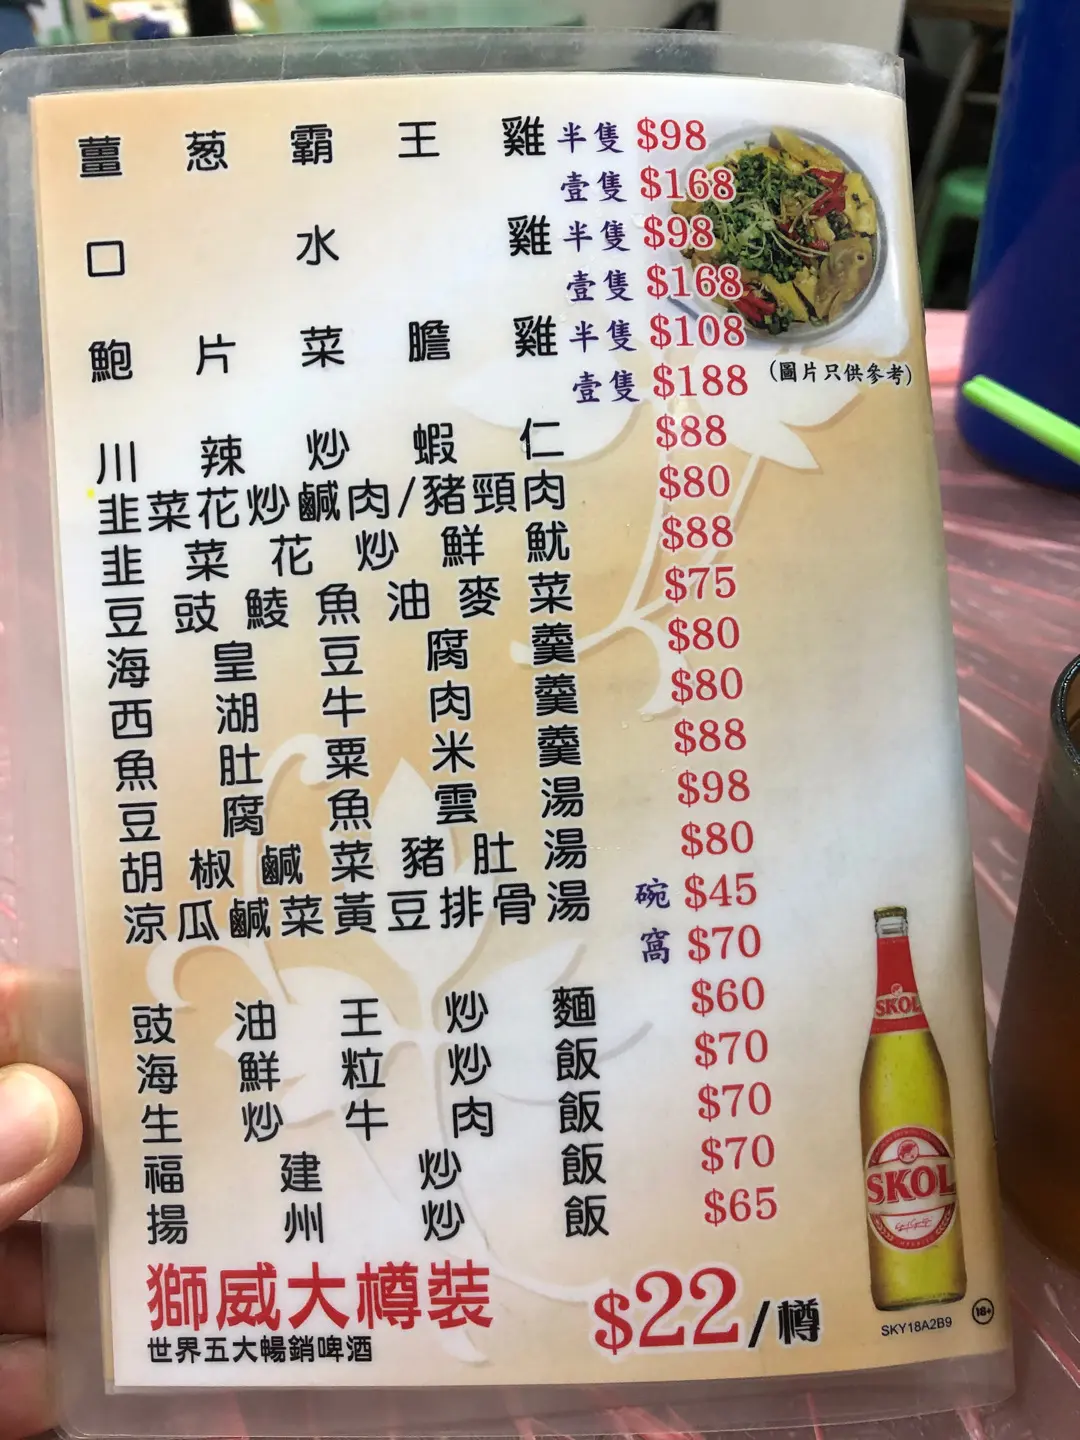 薑葱霸王雞 半隻 $98
壹隻 $168
口水雞 半隻 $98
壹隻 $168
鮑片菜膽雞 半隻 $108
壹隻 $188
(圖片只供參考)
川辣炒蝦仁 $88
韭菜花炒鹹肉/豬頸肉 $80
韭菜花炒鮮魷 $88
豆豉鯪魚油麥菜 $75
海皇豆腐羹 $80
西湖牛肉羹 $80
魚肚粟米羹 $88
豆腐魚雲湯 $98
胡椒鹹菜豬肚湯 $80
涼瓜鹹菜黃豆排骨湯 碗 $45
窩 $70
豉油王炒麵 $60
海鮮粒炒飯 $70
生炒牛肉飯 $70
福建炒飯 $70
揚州炒飯 $65
SKOL
SKOL
獅威大樽裝 $22/樽
世界五大暢銷啤酒
SKY18A2B9 18+